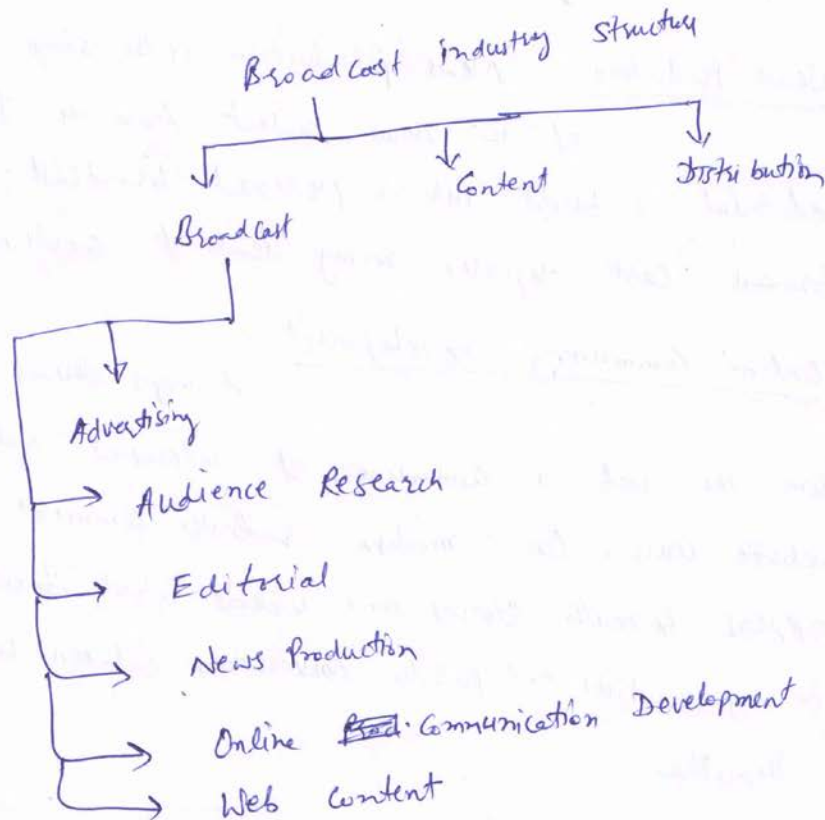 Broadcast industry structure
Broadcast
Content
Distribution
Advertising
Audience Research
Editorial
News Production
Online Communication Development
Web Content